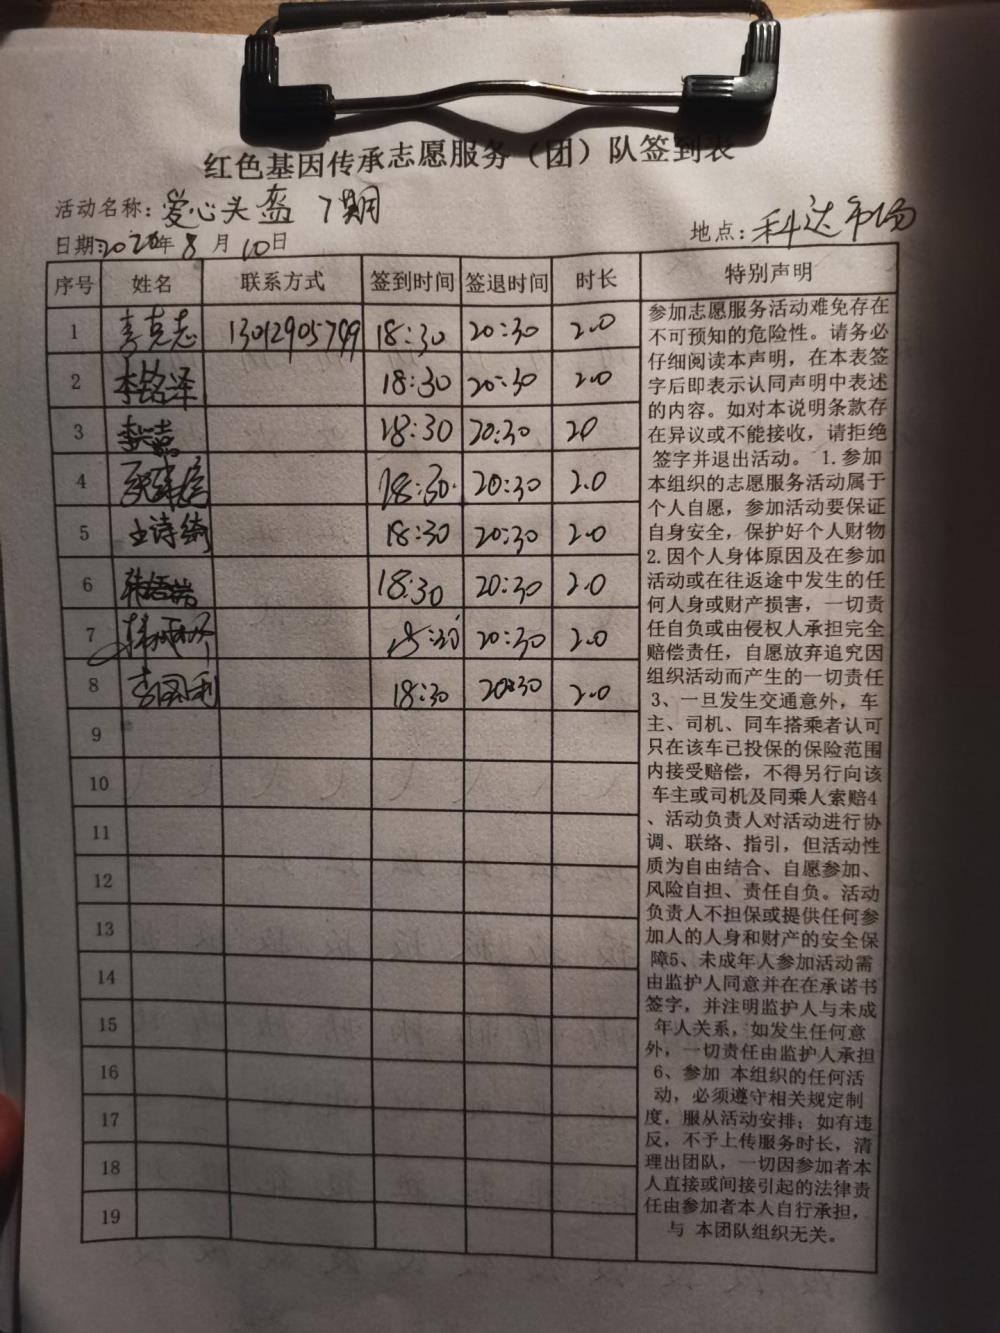 红色基因传承志愿服务（团）队签到表
活动名称：爱心头盔 7期
日期：年8月10日 地点：科达市场
序号 姓名 联系方式 签到时间 签退时间 时长 特别声明
1 李克志 13012905799 18:30 20:30 2.0
2 李铭泽 18:30 20:30 2.0
3 18:30 20:30 20
4 18:30 20:30 2.0
5 王诗绮 18:30 20:30 2.0
6 18:30 20:30 2.0
7 20:30 2.0
8 18:30 20:30 2.0
9
10
11
12
13
14
15
16
17
18
19
参加志愿服务活动难免存在
不可预知的危险性。请务必
仔细阅读本声明，在本表签
字后即表示认同声明中表述
的内容。如对本说明条款存
在异议或不能接收，请拒绝
签字并退出活动。 1.参加
本组织的志愿服务活动属于
个人自愿，参加活动要保证
自身安全，保护好个人财物
2.因个人身体原因及在参加
活动或在往返途中发生的任
何人身或财产损害，一切责
任自负或由侵权人承担完全
赔偿责任，自愿放弃追究因
组织活动而产生的一切责任
3、一旦发生交通意外，车
主、司机、同车搭乘者认可
只在该车已投保的保险范围
内接受赔偿，不得另行向该
车主或司机及同乘人索赔4
、活动负责人对活动进行协
调、联络、指引，但活动性
质为自由结合、自愿参加、
风险自担、责任自负。活动
负责人不担保或提供任何参
加人的人身和财产的安全保
障5、未成年人参加活动需
由监护人同意并在在承诺书
签字，并注明监护人与未成
年人关系，如发生任何意
外，一切责任由监护人承担
6、参加 本组织的任何活
动，必须遵守相关规定制
度，服从活动安排；如有违
反，不予上传服务时长，清
理出团队，一切因参加者本
人直接或间接引起的法律责
任由参加者本人自行承担，
与 本团队组织无关。